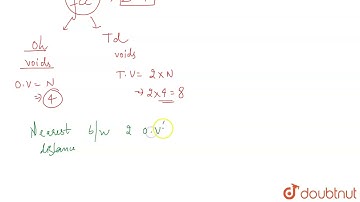 fcc
Oh
voids
Td
voids
O.V = N
→ 4
T.V = 2 × N
→ 2 × 4 = 8
Nearest b/w 2 O.V
distance
doubtnut